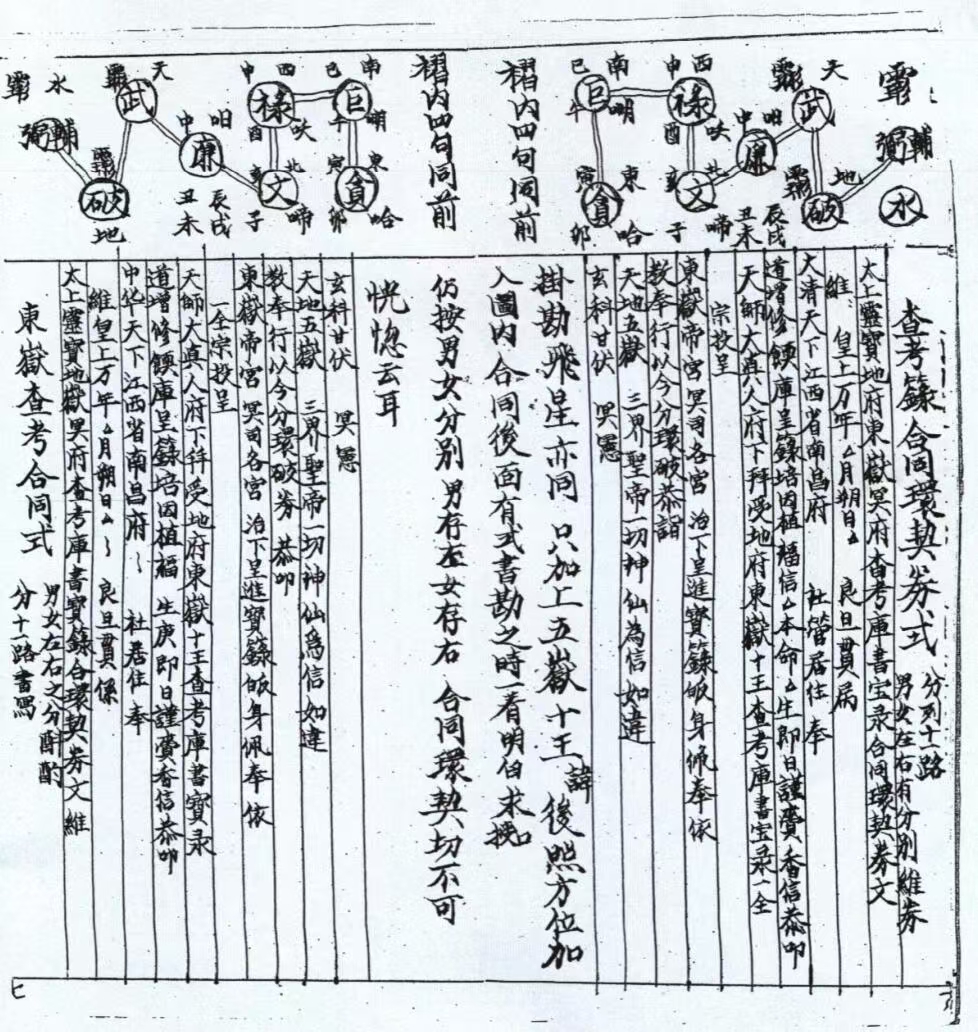 查考籙合同環契券式
分列十一路
男女左右有分別維券
太上靈寶地府東嶽冥府查考庫書宝录合同環契券文
維 皇上万年△月朔日△ 良旦貫屬
大清天下江西省南昌府 社管居住奉
道增修 庫呈籙培因植福信△本命△生即日謹賫香信恭叩
天師大真人府下拜受地府東嶽十王查考庫書宝录一全
宗投呈
東嶽帝宮冥司各宮 治下呈進寶籙皈身佩奉依
教奉行以今分環破券恭詣
天地五嶽 三界聖帝一切神仙為信如違
玄科甘伏 冥憲
掛勘飛星亦同只加上五嶽十王諱後照方位加
入圖內合同後面有式書勘之時一看明白求挽
仍按男女分別男存左女存右合同環契切不可
恍惚云耳
玄科甘伏 冥憲
天地五嶽 三界聖帝一切神仙為信如違
教奉行以今分環破券 恭叩
東嶽帝宮冥司各宮 治下呈進寶籙皈身佩奉依
一全宗投呈
天師大真人府下拜受地府東嶽十王查考庫書寶录
道增修 庫呈籙培因植福 生庚即日謹賫香信恭叩
中华天下江西省南昌府 社居住奉
維皇上万年△月朔日△ 良旦貫係
太上靈寶地嶽冥府查考庫書寶錄合環契券文維
東嶽查考合同式
男女左右之分酌
分十一路書寫
輔
弼
水
地
破
天
武
廉
申
辰戌
丑未
西
申
祿
酉
北
文
亥
子
啼
南
巳
巨
午
東
寅
貪
卯
哈
褶內四句同前
褶內四句同前
南
巳
巨
午
東
寅
貪
卯
哈
西
申
祿
酉
北
文
亥
子
啼
申
廉
辰戌
丑未
天
武
破
地
水
輔
弼
七